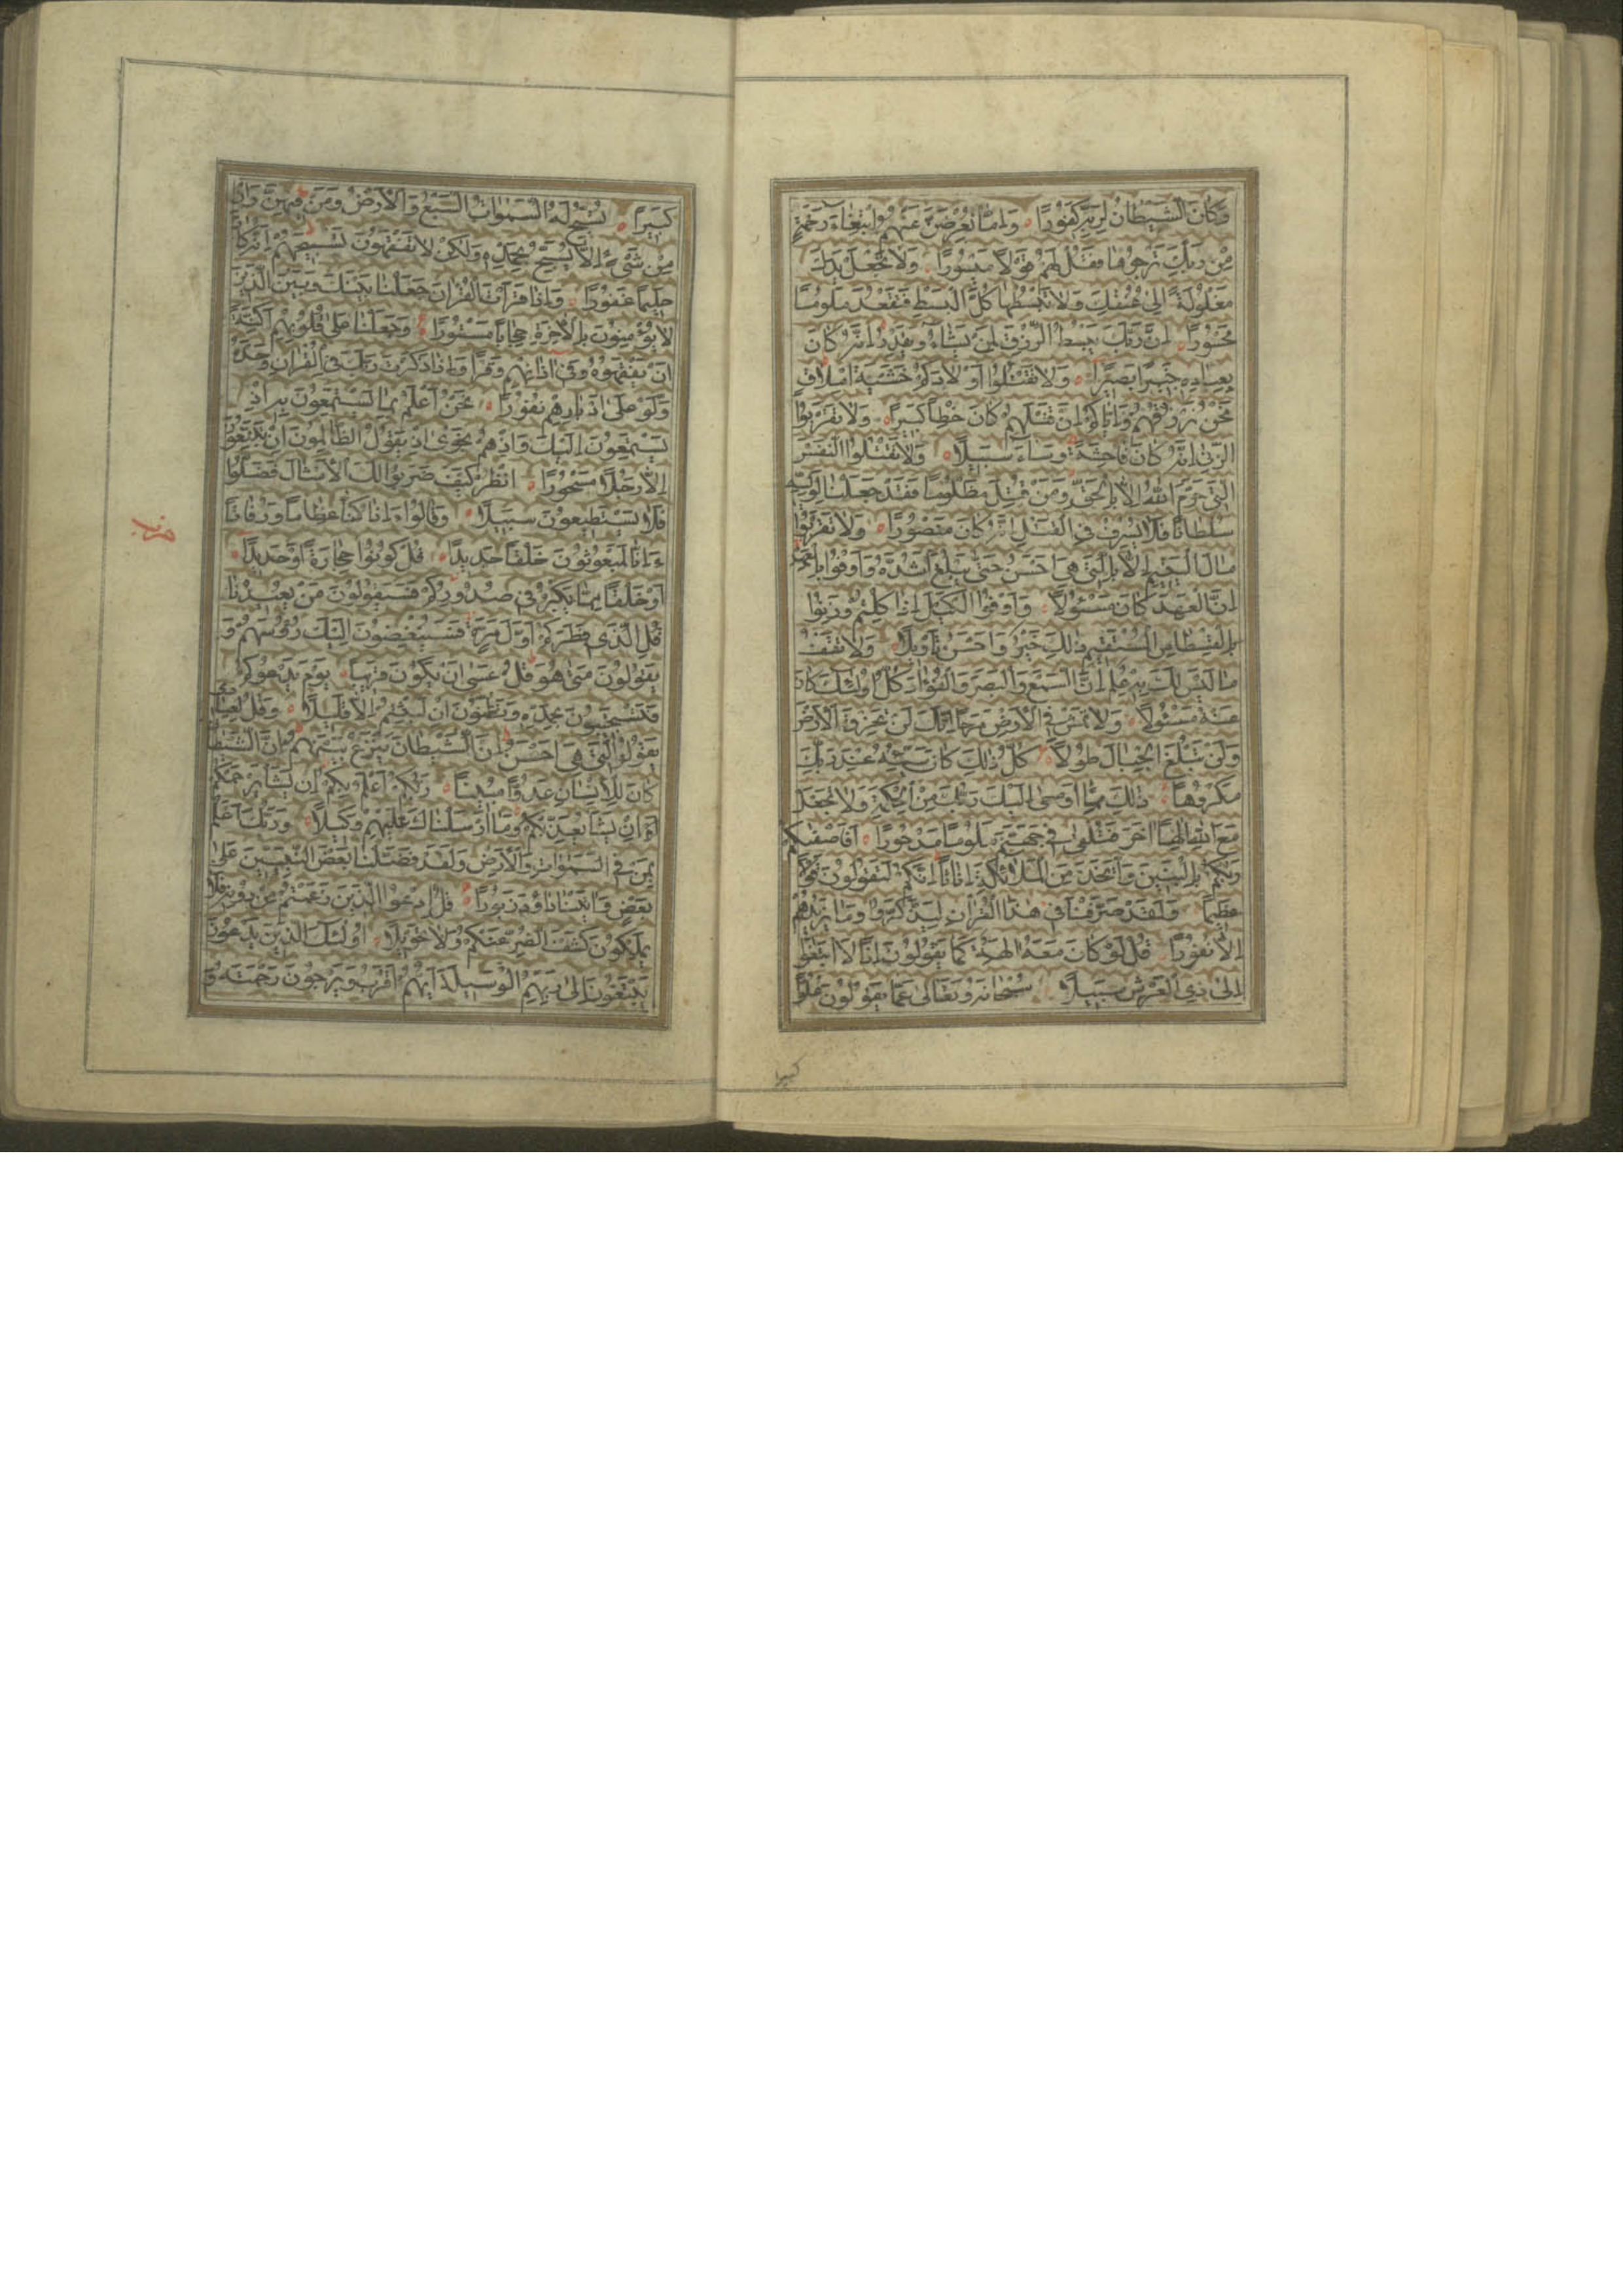 وَكَانَ الشَّيْطَانُ لِرَبِّهِ كَفُورًا وَاِمَّا تُعْرِضَنَّ عَنْهُمُ ابْتِغَاءَ رَحْمَةٍ
مِنْ رَبِّكَ تَرْجُوهَا فَقُلْ لَهُمْ قَوْلًا مَيْسُورًا وَلَا تَجْعَلْ يَدَكَ
مَغْلُولَةً اِلَى عُنُقِكَ وَلَا تَبْسُطْهَا كُلَّ الْبَسْطِ فَتَقْعُدَ مَلُومًا
مَحْسُورًا اِنَّ رَبَّكَ يَبْسُطُ الرِّزْقَ لِمَنْ يَشَاءُ وَيَقْدِرُ اِنَّهُ كَانَ
بِعِبَادِهِ خَبِيرًا بَصِيرًا وَلَا تَقْتُلُوا اَوْلَادَكُمْ خَشْيَةَ اِمْلَاقٍ
نَحْنُ نَرْزُقُهُمْ وَاِيَّاكُمْ اِنَّ قَتْلَهُمْ كَانَ خِطْأً كَبِيرًا وَلَا تَقْرَبُوا
الزِّنَى اِنَّهُ كَانَ فَاحِشَةً وَسَاءَ سَبِيلًا وَلَا تَقْتُلُوا النَّفْسَ
الَّتِي حَرَّمَ اللّٰهُ اِلَّا بِالْحَقِّ وَمَنْ قُتِلَ مَظْلُومًا فَقَدْ جَعَلْنَا لِوَلِيِّهِ
سُلْطَانًا فَلَا يُسْرِفْ فِي الْقَتْلِ اِنَّهُ كَانَ مَنْصُورًا وَلَا تَقْرَبُوا
مَالَ الْيَتِيمِ اِلَّا بِالَّتِي هِيَ اَحْسَنُ حَتَّى يَبْلُغَ اَشُدَّهُ وَاَوْفُوا بِالْعَهْدِ
اِنَّ الْعَهْدَ كَانَ مَسْئُولًا وَاَوْفُوا الْكَيْلَ اِذَا كِلْتُمْ وَزِنُوا
بِالْقِسْطَاسِ الْمُسْتَقِيمِ ذٰلِكَ خَيْرٌ وَاَحْسَنُ تَأْوِيلًا وَلَا تَقْفُ
مَا لَيْسَ لَكَ بِهِ عِلْمٌ اِنَّ السَّمْعَ وَالْبَصَرَ وَالْفُؤَادَ كُلُّ اُولٰئِكَ كَانَ
عَنْهُ مَسْئُولًا وَلَا تَمْشِ فِي الْاَرْضِ مَرَحًا اِنَّكَ لَنْ تَخْرِقَ الْاَرْضَ
وَلَنْ تَبْلُغَ الْجِبَالَ طُولًا كُلُّ ذٰلِكَ كَانَ سَيِّئُهُ عِنْدَ رَبِّكَ
مَكْرُوهًا ذٰلِكَ مِمَّا اَوْحٰى اِلَيْكَ رَبُّكَ مِنَ الْحِكْمَةِ وَلَا تَجْعَلْ
مَعَ اللّٰهِ اِلٰهًا اٰخَرَ فَتُلْقٰى فِي جَهَنَّمَ مَلُومًا مَدْحُورًا اَفَاَصْفٰكُمْ
رَبُّكُمْ بِالْبَنِينَ وَاتَّخَذَ مِنَ الْمَلٰئِكَةِ اِنَاثًا اِنَّكُمْ لَتَقُولُونَ قَوْلًا
عَظِيمًا وَلَقَدْ صَرَّفْنَا فِي هٰذَا الْقُرْاٰنِ لِيَذَّكَّرُوا وَمَا يَزِيدُهُمْ
اِلَّا نُفُورًا قُلْ لَوْ كَانَ مَعَهُ اٰلِهَةٌ كَمَا يَقُولُونَ اِذًا لَابْتَغَوْا
اِلٰى ذِي الْعَرْشِ سَبِيلًا سُبْحَانَهُ وَتَعَالٰى عَمَّا يَقُولُونَ عُلُوًّا
كبيرا
كَبِيرًا تُسَبِّحُ لَهُ السَّمٰوَاتُ السَّبْعُ وَالْاَرْضُ وَمَنْ فِيهِنَّ وَاِنْ
مِنْ شَيْءٍ اِلَّا يُسَبِّحُ بِحَمْدِهِ وَلٰكِنْ لَا تَفْقَهُونَ تَسْبِيحَهُمْ اِنَّهُ كَانَ
حَلِيمًا غَفُورًا وَاِذَا قَرَأْتَ الْقُرْاٰنَ جَعَلْنَا بَيْنَكَ وَبَيْنَ الَّذِينَ
لَا يُؤْمِنُونَ بِالْاٰخِرَةِ حِجَابًا مَسْتُورًا وَجَعَلْنَا عَلٰى قُلُوبِهِمْ اَكِنَّةً
اَنْ يَفْقَهُوهُ وَفِي اٰذَانِهِمْ وَقْرًا وَاِذَا ذَكَرْتَ رَبَّكَ فِي الْقُرْاٰنِ وَحْدَهُ
وَلَّوْا عَلٰى اَدْبَارِهِمْ نُفُورًا نَحْنُ اَعْلَمُ بِمَا يَسْتَمِعُونَ بِهِ اِذْ
يَسْتَمِعُونَ اِلَيْكَ وَاِذْ هُمْ نَجْوٰى اِذْ يَقُولُ الظَّالِمُونَ اِنْ تَتَّبِعُونَ
اِلَّا رَجُلًا مَسْحُورًا اُنْظُرْ كَيْفَ ضَرَبُوا لَكَ الْاَمْثَالَ فَضَلُّوا
فَلَا يَسْتَطِيعُونَ سَبِيلًا وَقَالُوا ءَاِذَا كُنَّا عِظَامًا وَرُفَاتًا
حزب
ءَاِنَّا لَمَبْعُوثُونَ خَلْقًا جَدِيدًا قُلْ كُونُوا حِجَارَةً اَوْ حَدِيدًا
اَوْ خَلْقًا مِمَّا يَكْبُرُ فِي صُدُورِكُمْ فَسَيَقُولُونَ مَنْ يُعِيدُنَا
قُلِ الَّذِي فَطَرَكُمْ اَوَّلَ مَرَّةٍ فَسَيُنْغِضُونَ اِلَيْكَ رُؤُسَهُمْ وَ
يَقُولُونَ مَتٰى هُوَ قُلْ عَسٰى اَنْ يَكُونَ قَرِيبًا يَوْمَ يَدْعُوكُمْ
فَتَسْتَجِيبُونَ بِحَمْدِهِ وَتَظُنُّونَ اِنْ لَبِثْتُمْ اِلَّا قَلِيلًا وَقُلْ لِعِبَادِي
يَقُولُوا الَّتِي هِيَ اَحْسَنُ اِنَّ الشَّيْطَانَ يَنْزَغُ بَيْنَهُمْ اِنَّ الشَّيْطَانَ
كَانَ لِلْاِنْسَانِ عَدُوًّا مُبِينًا رَبُّكُمْ اَعْلَمُ بِكُمْ اِنْ يَشَأْ يَرْحَمْكُمْ
اَوْ اِنْ يَشَأْ يُعَذِّبْكُمْ وَمَا اَرْسَلْنَاكَ عَلَيْهِمْ وَكِيلًا وَرَبُّكَ اَعْلَمُ
بِمَنْ فِي السَّمٰوَاتِ وَالْاَرْضِ وَلَقَدْ فَضَّلْنَا بَعْضَ النَّبِيِّينَ عَلٰى
بَعْضٍ وَاٰتَيْنَا دَاوُدَ زَبُورًا قُلِ ادْعُوا الَّذِينَ زَعَمْتُمْ مِنْ دُونِهِ فَلَا
يَمْلِكُونَ كَشْفَ الضُّرِّ عَنْكُمْ وَلَا تَحْوِيلًا اُولٰئِكَ الَّذِينَ يَدْعُونَ
يَبْتَغُونَ اِلٰى رَبِّهِمُ الْوَسِيلَةَ اَيُّهُمْ اَقْرَبُ وَيَرْجُونَ رَحْمَتَهُ وَ